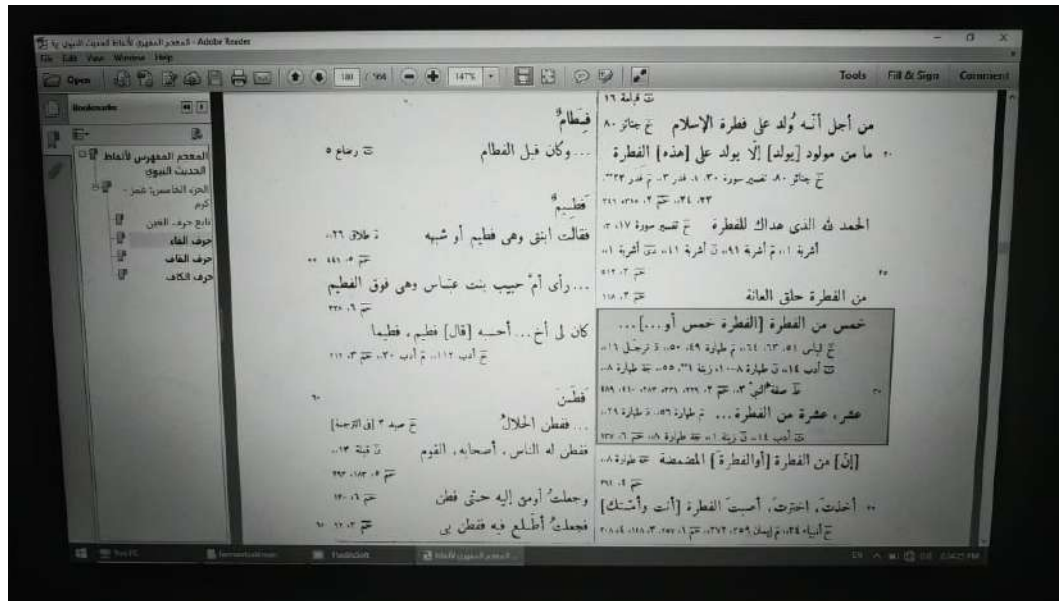 المعجم المفهرس لألفاظ الحديث النبوي - Adobe Reader
File Edit View Window Help
Open
180 / 564
147%
Tools Fill & Sign Comment
Bookmarks
المعجم المفهرس لألفاظ
الحديث النبوي
الجزء الخامس: غمز -
كرم
تابع حرف الغين
حرف الفاء
حرف القاف
حرف الكاف
ت قيامة ١٦
من أجل أنّه وُلد على فطرة الإسلام خ جنائز ٨٠
ما من مولود [يولد] إلّا يولد على [هذه] الفطرة
خ جنائز ٨٠، تفسير سورة ٣٠، ١، قدر ٣، م قدر
الحمد لله الذى هداك للفطرة خ تفسير سورة ١٧، ٣،
أشربة ١، م أشربة ٩١، ن أشربة ٤١، دى أشربة ١،
حم ٢، ٥١٢
من الفطرة حلق العانة حم ٢، ١١٨
خمس من الفطرة [الفطرة خمس أو...]...
خ لباس ٥١، ٦٣، ٦٤، م طهارة ٤٩، ٥٠، د ترجّل ١٦،
ت أدب ١٤، ن طهارة ٨-١٠، زينة ٥٥، جه طهارة ٨،
ط صفة النبيّ ٣، حم ٢، ٢٢٩، ٢٣٩، ٢٨٣، ٤١٠، ٤٨٩
عشر، عشرة من الفطرة... م طهارة ٥٦، د طهارة ٢٩،
ت أدب ١٤، ن زينة ١، جه طهارة ٨، حم ٦، ١٣٧
[إنّ] من الفطرة [أوالفطرةَ] المضمضة جه طهارة ٨،
حم ٤،
أخذتَ، اخترتَ، أصبتَ الفطرة [أنت وأمّتك]
خ أنبياء ٢٤، م إيمان ٢٥٩، ٢٧٢، حم ١، ٢٥٧،
فِطامٌ
...وكان قبل الفطام ت رضاع ٥
فَطيمٌ
فقالت ابنتى وهى فطيم أو شبهه د طلاق ٢٦،
حم ٥، ٤٤٦
...رأى أمّ حبيب بنت عبّاس وهى فوق الفطيم
حم ٦،
كان لى أخ... أحسبه [قال] فطيم، فطيما
خ أدب ١١٢، م أدب ٣٠، حم ٣، ٢١٢
فَطَنَ
...ففطن الحلالُ خ صيد ٢ [فى الترجمة]
ففطن له الناس، أصحابه، القوم ن قبلة ١٣،
حم ٥، ١٨٣، ٢٩٣
وجعلتُ أومئ إليه حتّى فطن حم ٦،
فجعلتُ أطّلع فيه ففطن بى حم